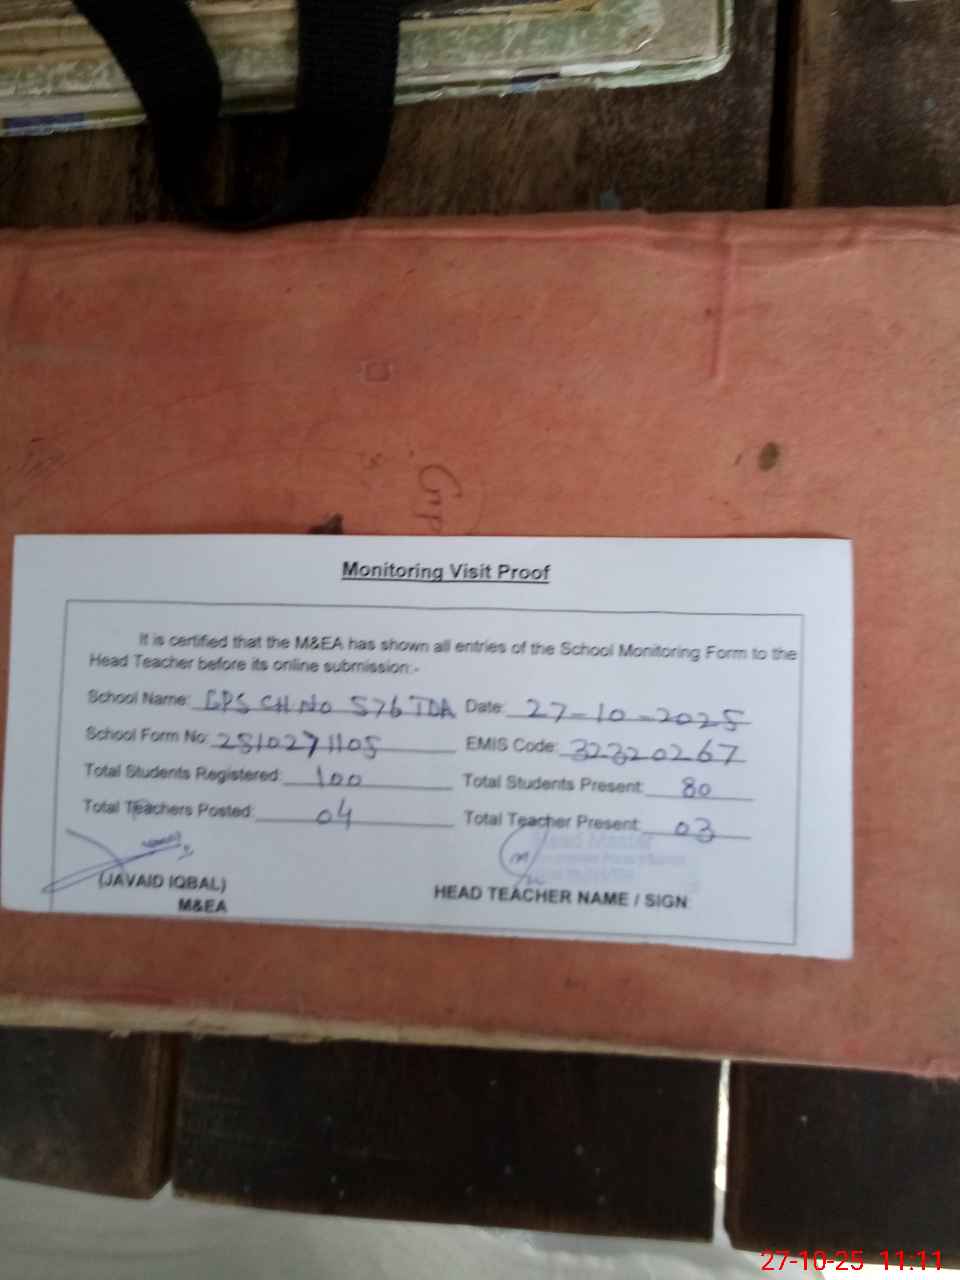 Monitoring Visit Proof
It is certified that the M&EA has shown all entries of the School Monitoring Form to the
Head Teacher before its online submission:-
School Name: GPS CH NO 576 TDA Date: 27-10-2025
School Form No: 2510271105 EMIS Code: 32320267
Total Students Registered: 100 Total Students Present: 80
Total Teachers Posted: 04 Total Teacher Present: 03
Head Master
(JAVAID IQBAL)
M&EA
HEAD TEACHER NAME / SIGN
27-10-25 11:11